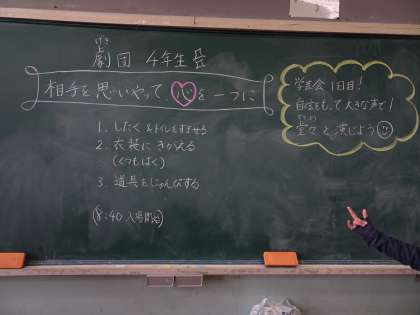 げき
劇団 4年生
相手を思いやって、心を一つに
1. したく &トイレをすませる
2. 衣装に きがえる
(くつもはく)
3. 道具をじゅんびする
(8:40 入場開始)
学芸会1日目!
自信をもって大きな声で!
堂々と演じよう